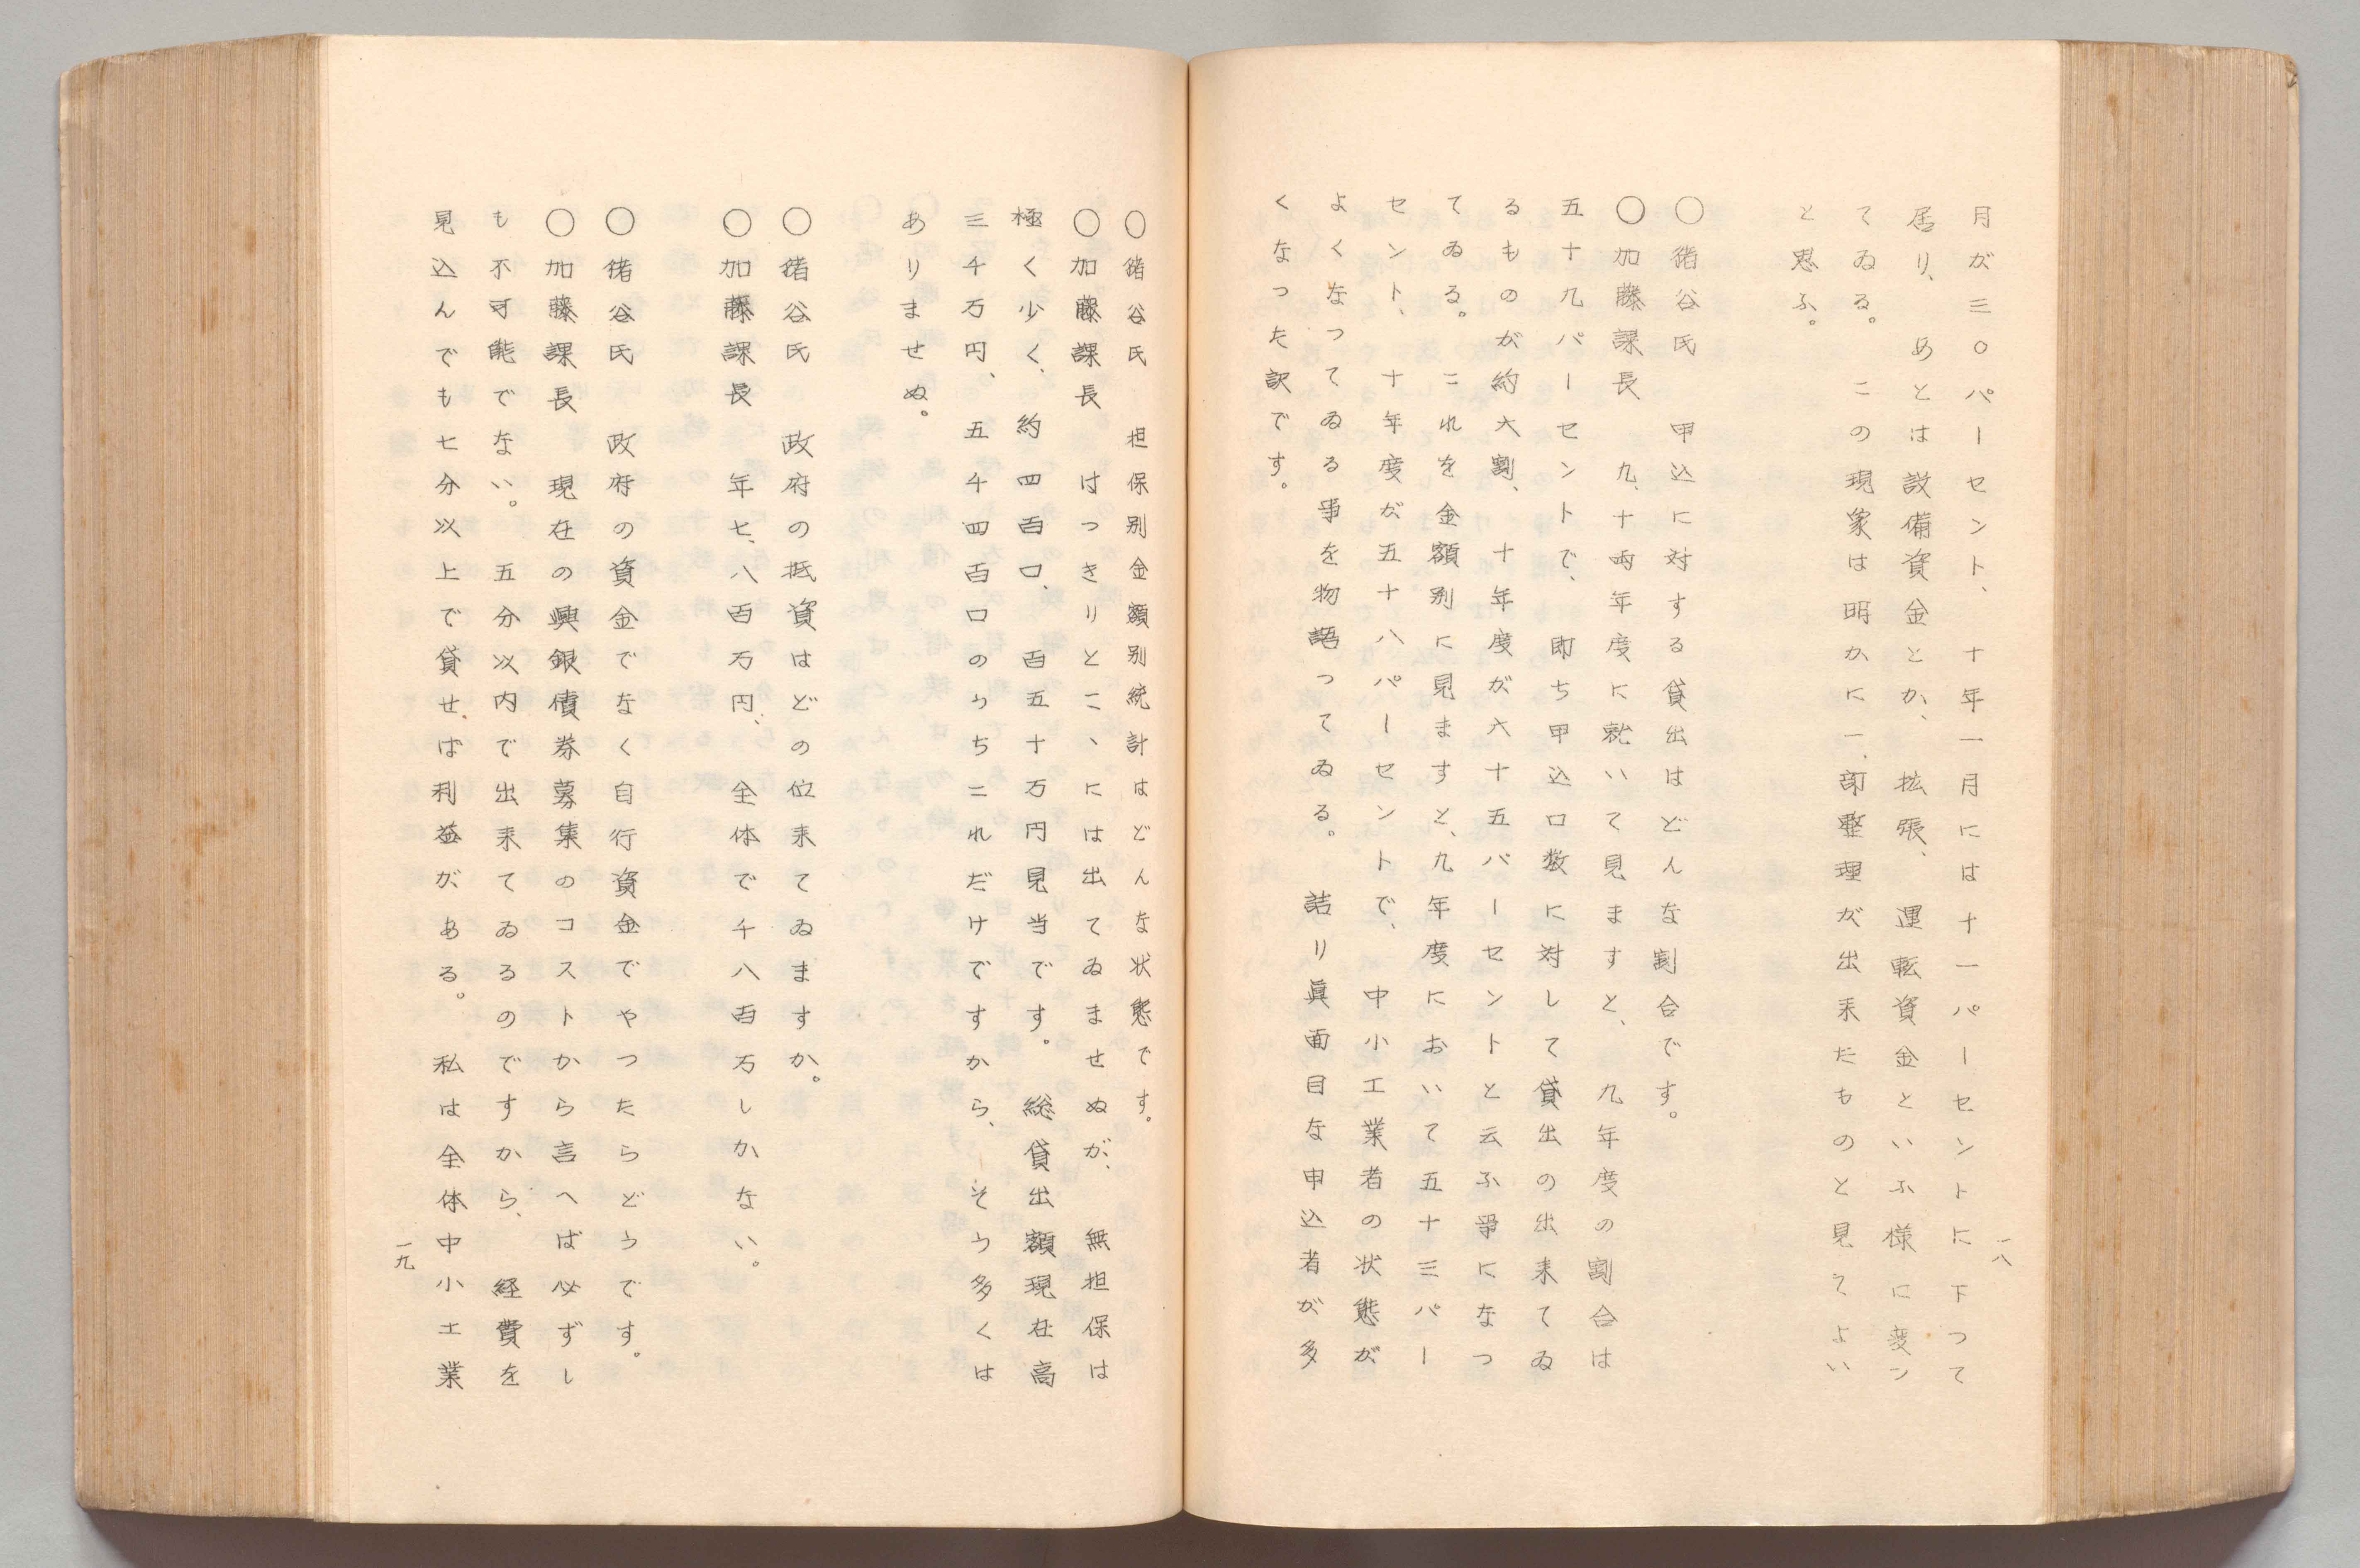 月が三〇パーセント、十年一月には十一パーセントに下つて
居り、あとは設備資金とか、拡張、運転資金といふ様に変ツ
てゐる。この現象は明かに一部整理が出来たものと見てよい
と思ふ。
〇猪谷氏　甲込に対する貸出はどんな割合です。
〇加藤課長　九、十両年度に就いて見ますと、九年度の割合は
五十九パーセントで、即ち甲込口数に対して貸出の出来てゐ
るものが約六割、十年度が六十五パーセントと云ふ事になつ
てゐる。これを金額別に見ますと、九年度において五十三パー
セント、十年度が五十八パーセントで、中小工業者の状態が
よくなつてゐる事を物語つてゐる。詰り眞面目な申込者が多
くなつた訳です。
一八
〇猪谷氏　担保別金額別統計はどんな状態です。
〇加藤課長　はつきりとこゝには出てゐませぬが、無担保は
極く少く、約四百口、百五十万円見当です。総貸出額現在高
三千万円、五千四百口のうちこれだけですから、そう多くは
ありませぬ。
〇猪谷氏　政府の抵資はどの位来てゐますか。
〇加藤課長　年七、八百万円、全体で千八百万しかない。
〇猪谷氏　政府の資金でなく自行資金でやつたらどうです。
〇加藤課長　現在の興銀債券募集のコストから言へば必ずし
も不可能でない。五分以内で出来てゐるのですから、経費を
見込んでも七分以上で貸せば利益がある。私は全体中小工業
一九